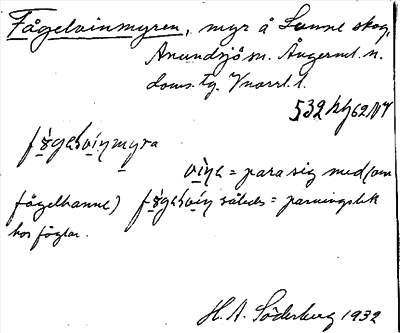 Fågelvinmyren, myr å Sunne skog,
Anundsjö sn. Ångerml. n.
doms. tg. V norrl. l.
532 hg 62 NV
fógəlsvínmyra
víne = para sig med (om
fågelhanne) fógəlsvín således = parningslek
hos fåglar.
H. A. Söderberg 1932